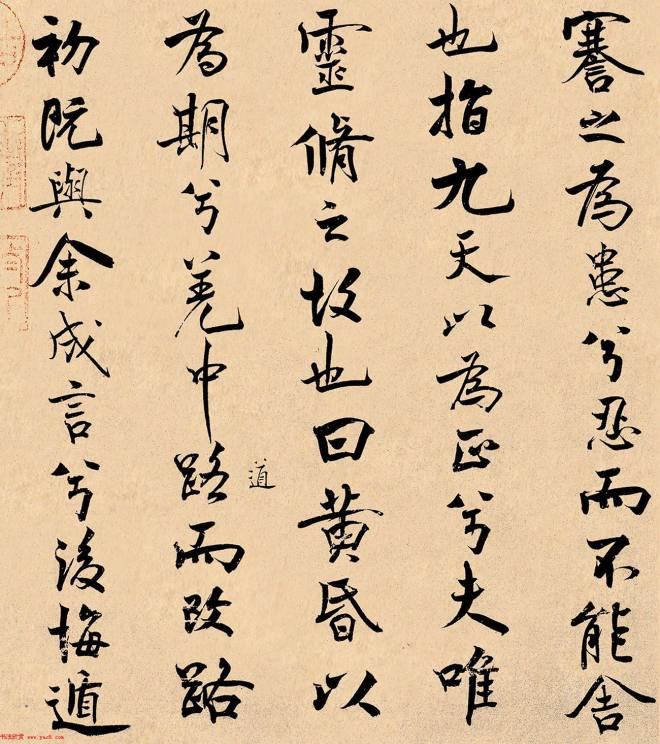 謇之為患兮忍而不能舍
也指九天以為正兮夫唯
靈脩之故也曰黄昏以
為期兮羌中路而改路
道
初既與余成言兮後悔遁
书法欣赏 www.yac8.com